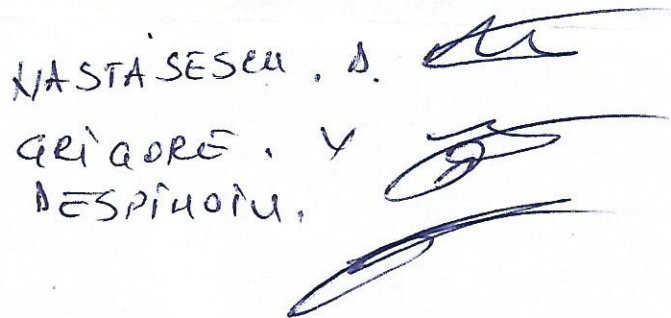 NASTASESCU. D.
GRIGORE. V
DESPINOIU.